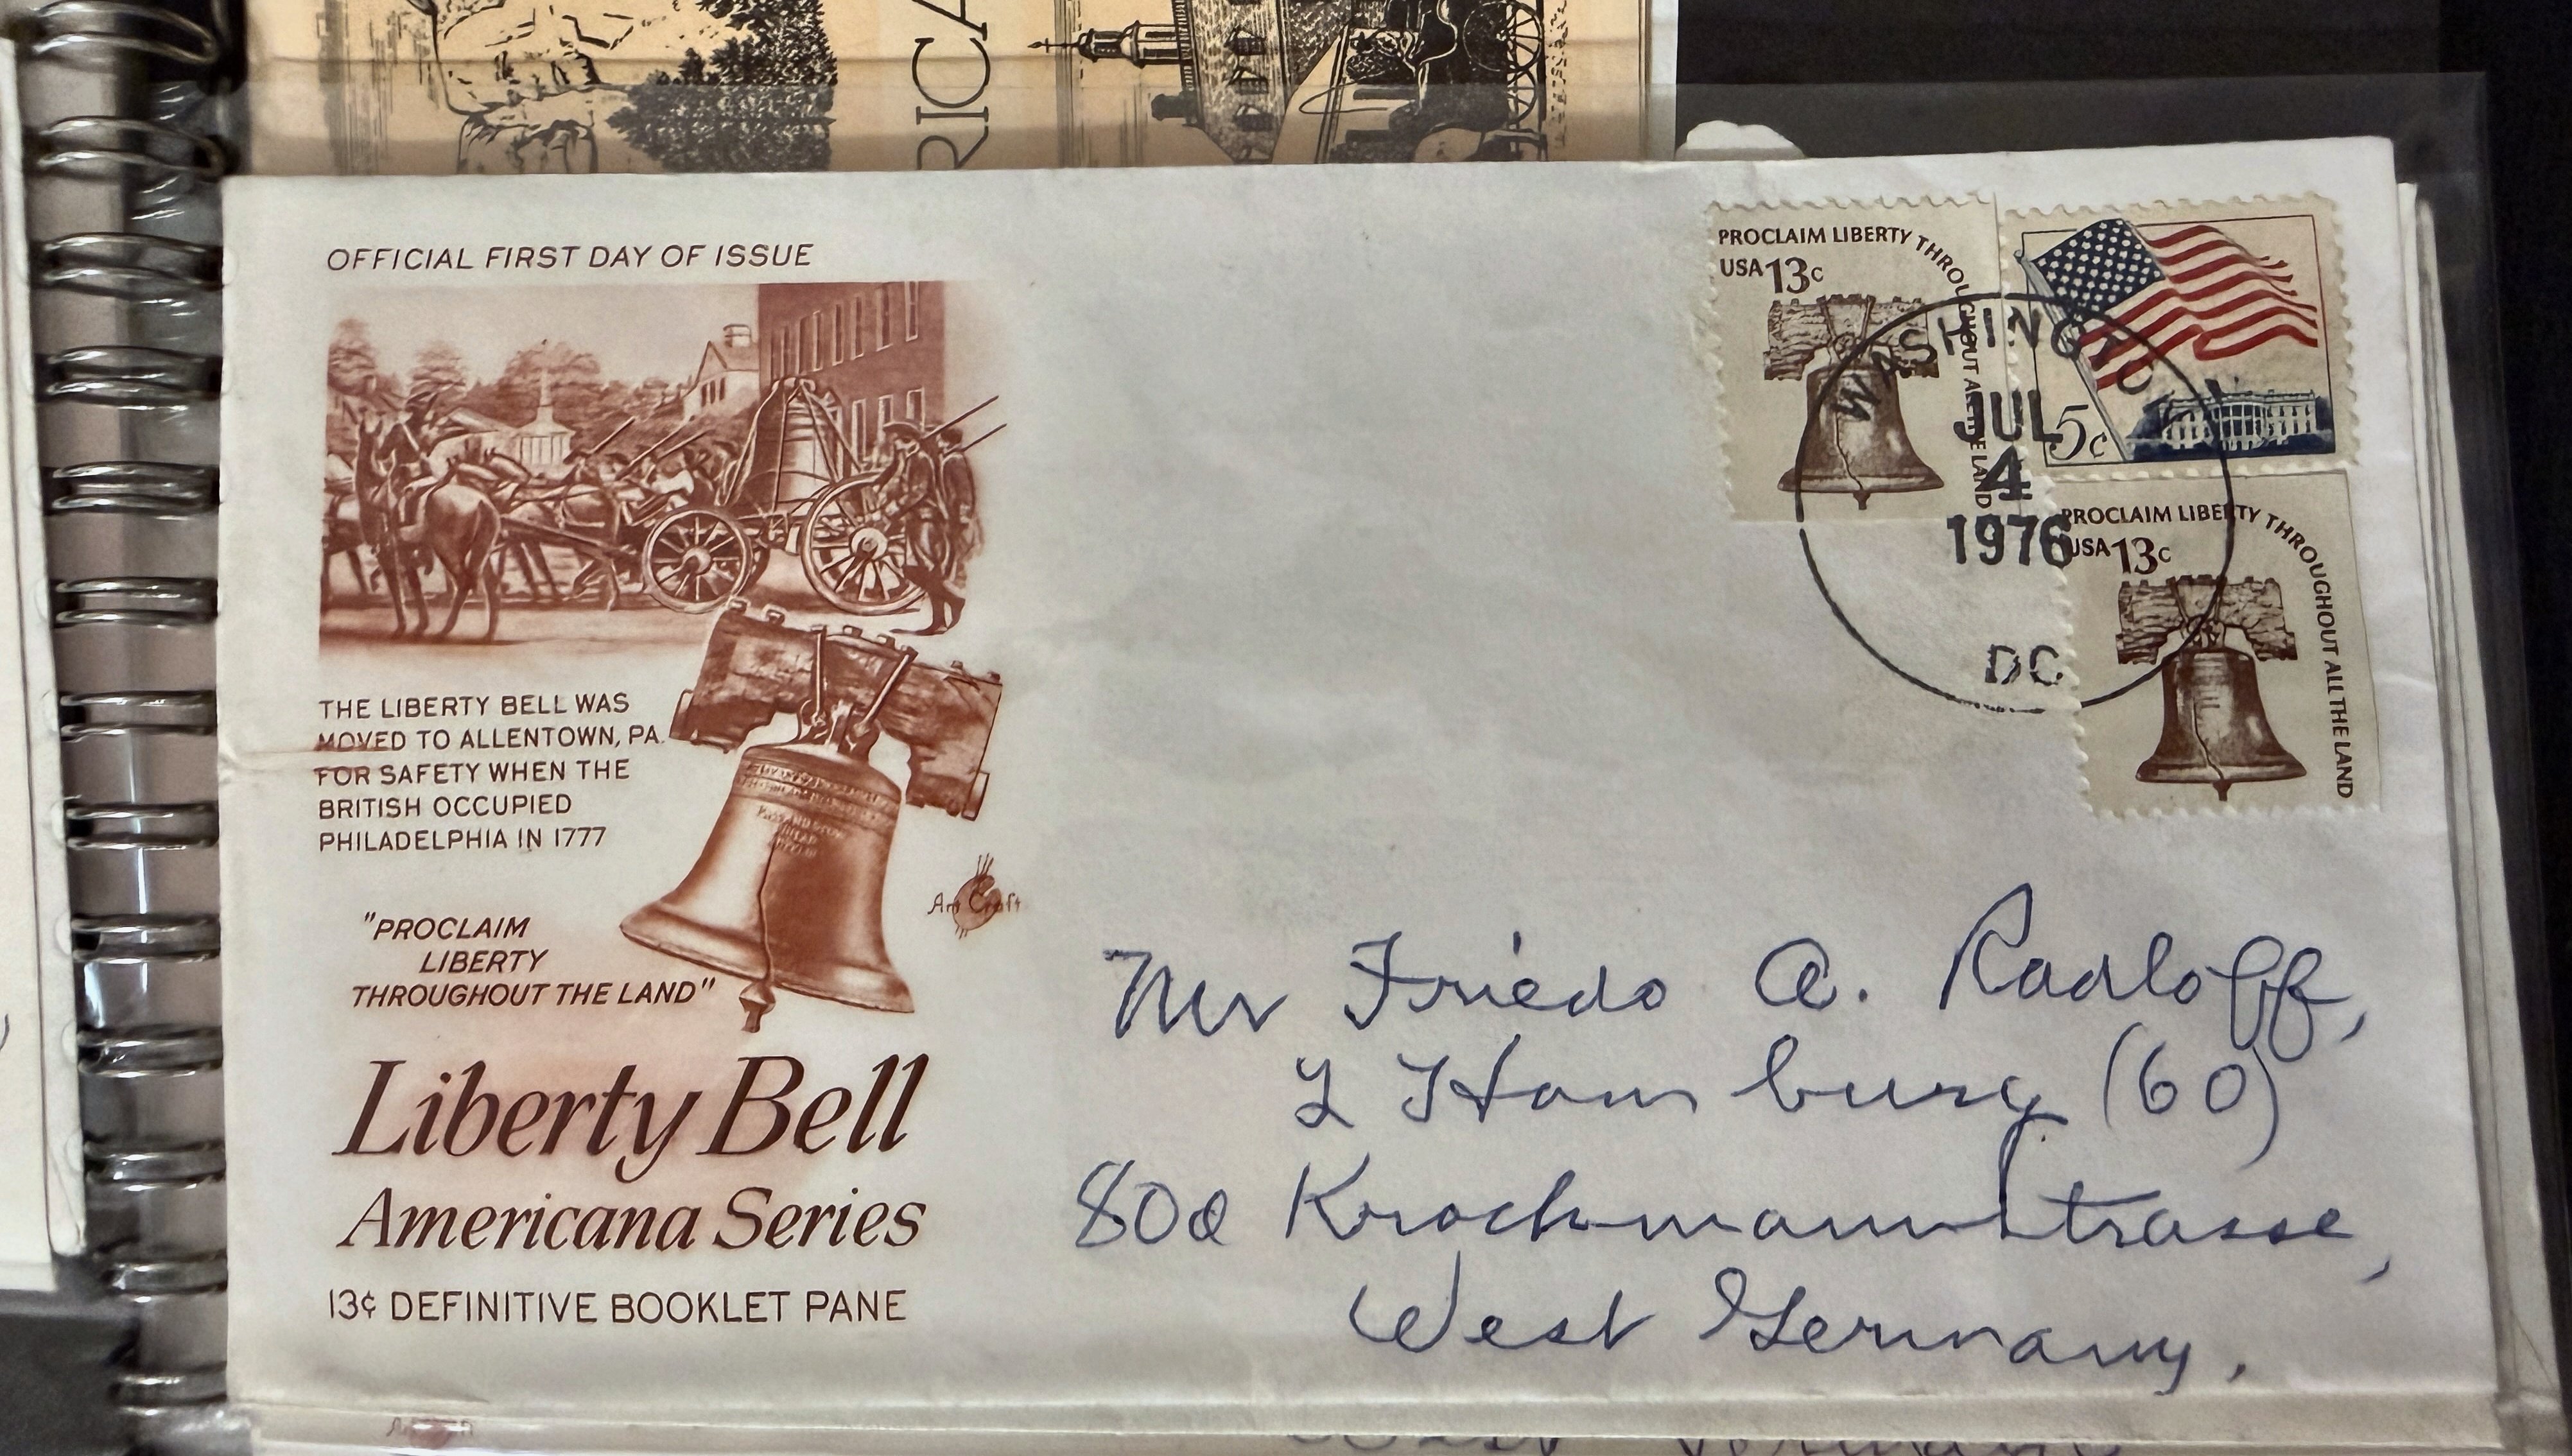 RICA
OFFICIAL FIRST DAY OF ISSUE
THE LIBERTY BELL WAS
MOVED TO ALLENTOWN, PA.
FOR SAFETY WHEN THE
BRITISH OCCUPIED
PHILADELPHIA IN 1777
"PROCLAIM
LIBERTY
THROUGHOUT THE LAND"
Art Craft
Liberty Bell
Americana Series
13¢ DEFINITIVE BOOKLET PANE
PROCLAIM LIBERTY THROUGHOUT ALL THE LAND
USA 13c
5c
WASHINGTON
JUL
4
1976
DC
PROCLAIM LIBERTY THROUGHOUT ALL THE LAND
USA 13c
Mr Friedo A. Radloff,
2 Hamburg (60)
80d Krochmannstrasse,
West Germany.